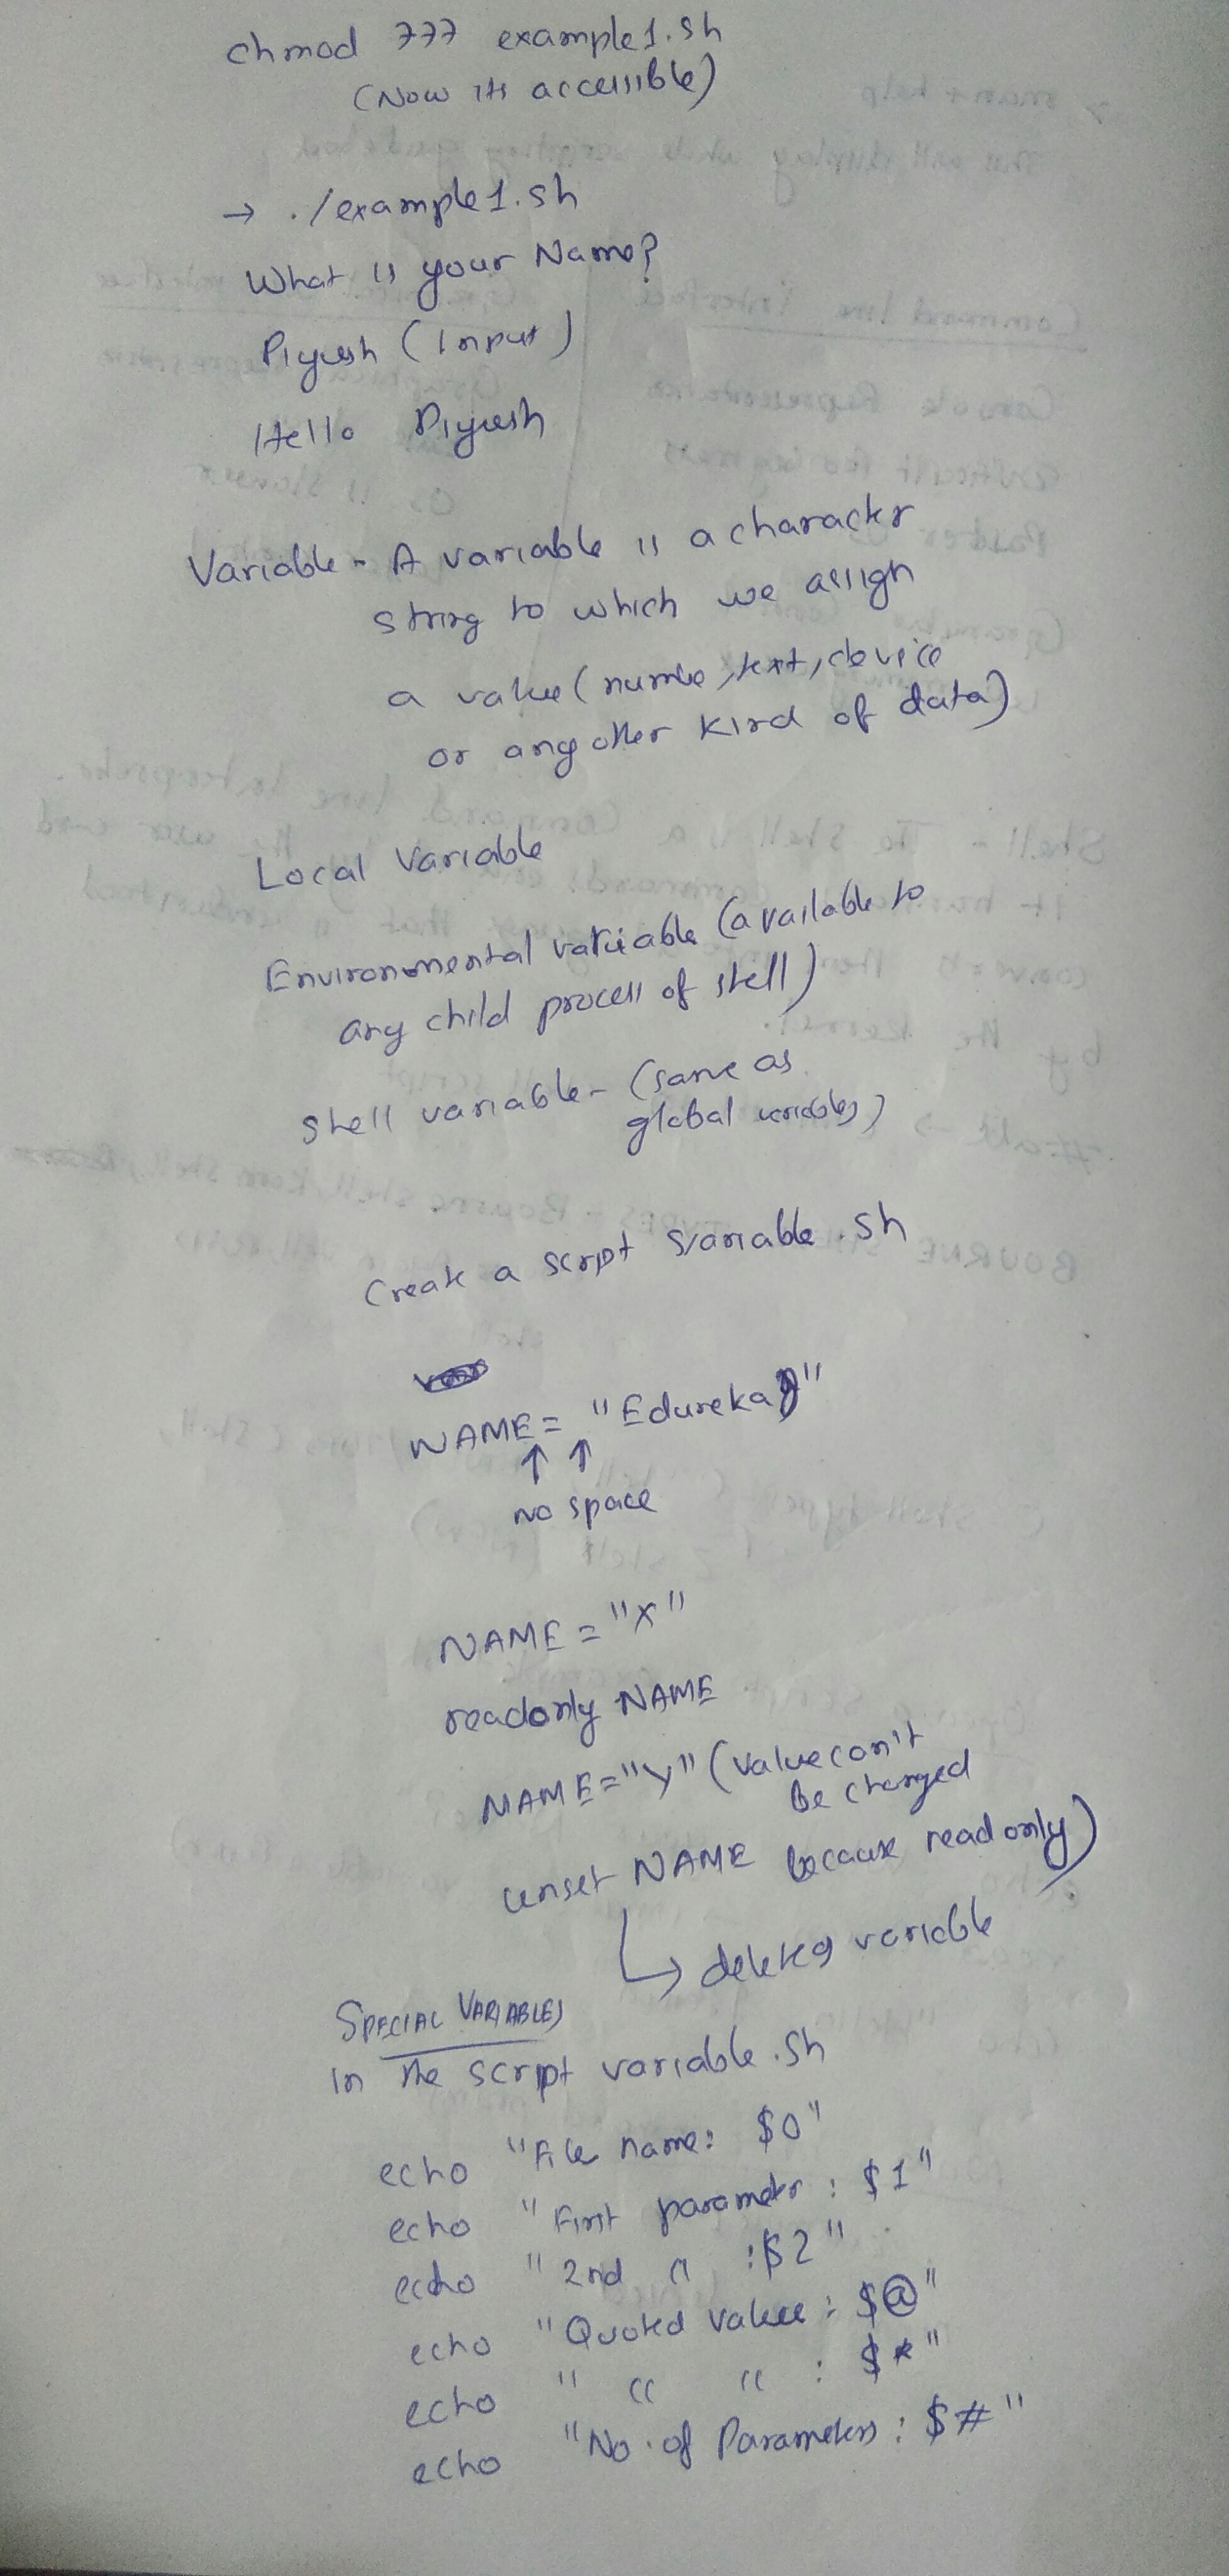 chmod 777 example1.sh
(Now its accessible)
→ ./example1.sh
What is your Name?
Piyush (Input)
Hello Piyush
Variable - A variable is a character
string to which we assign
a value (numbe, text, device
or any other kind of data)
Local Variable
Environmental variable (available to
any child process of shell)
Shell variable - (same as
global variables)
Create a script variable.sh
NAME= "Edureka"
↑ ↑
no space
NAME="X"
readonly NAME
NAME="Y" (value can't
be changed
unset NAME because readonly)
↳ deletes variable
SPECIAL VARIABLES
In the script variable.sh
echo "File name: $0"
echo "First parameter : $1"
echo "2nd " :$2"
echo "Quoted value : $@"
echo " " " : $*"
echo "No. of Parameters : $#"